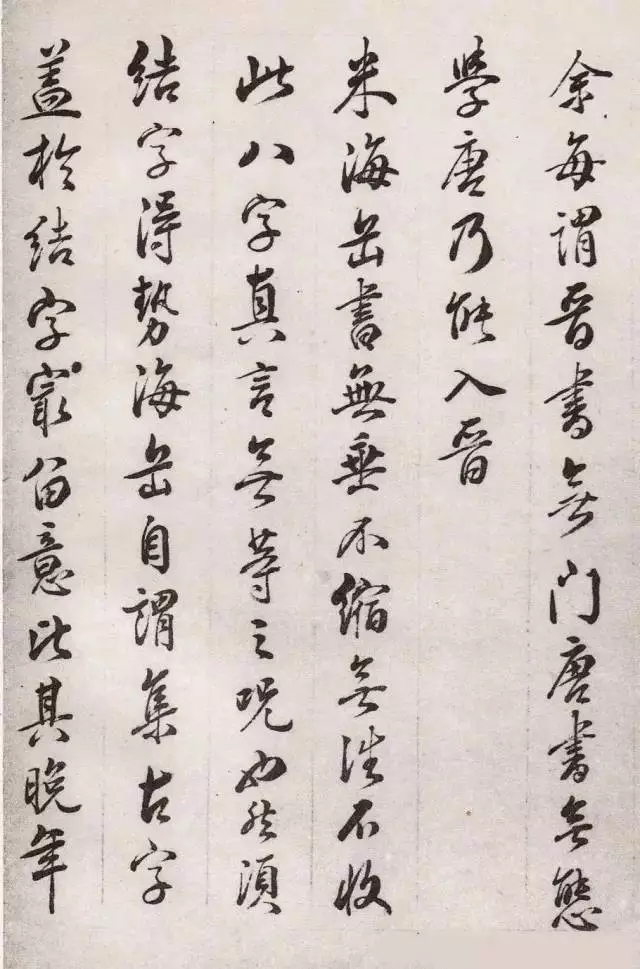 余每謂晉書無門唐書無態
學唐乃能入晉
米海岳書無垂不縮無往不收
此八字真言無等之呪也然須
結字得勢海岳自謂集古字
蓋於結字最留意比其晚年